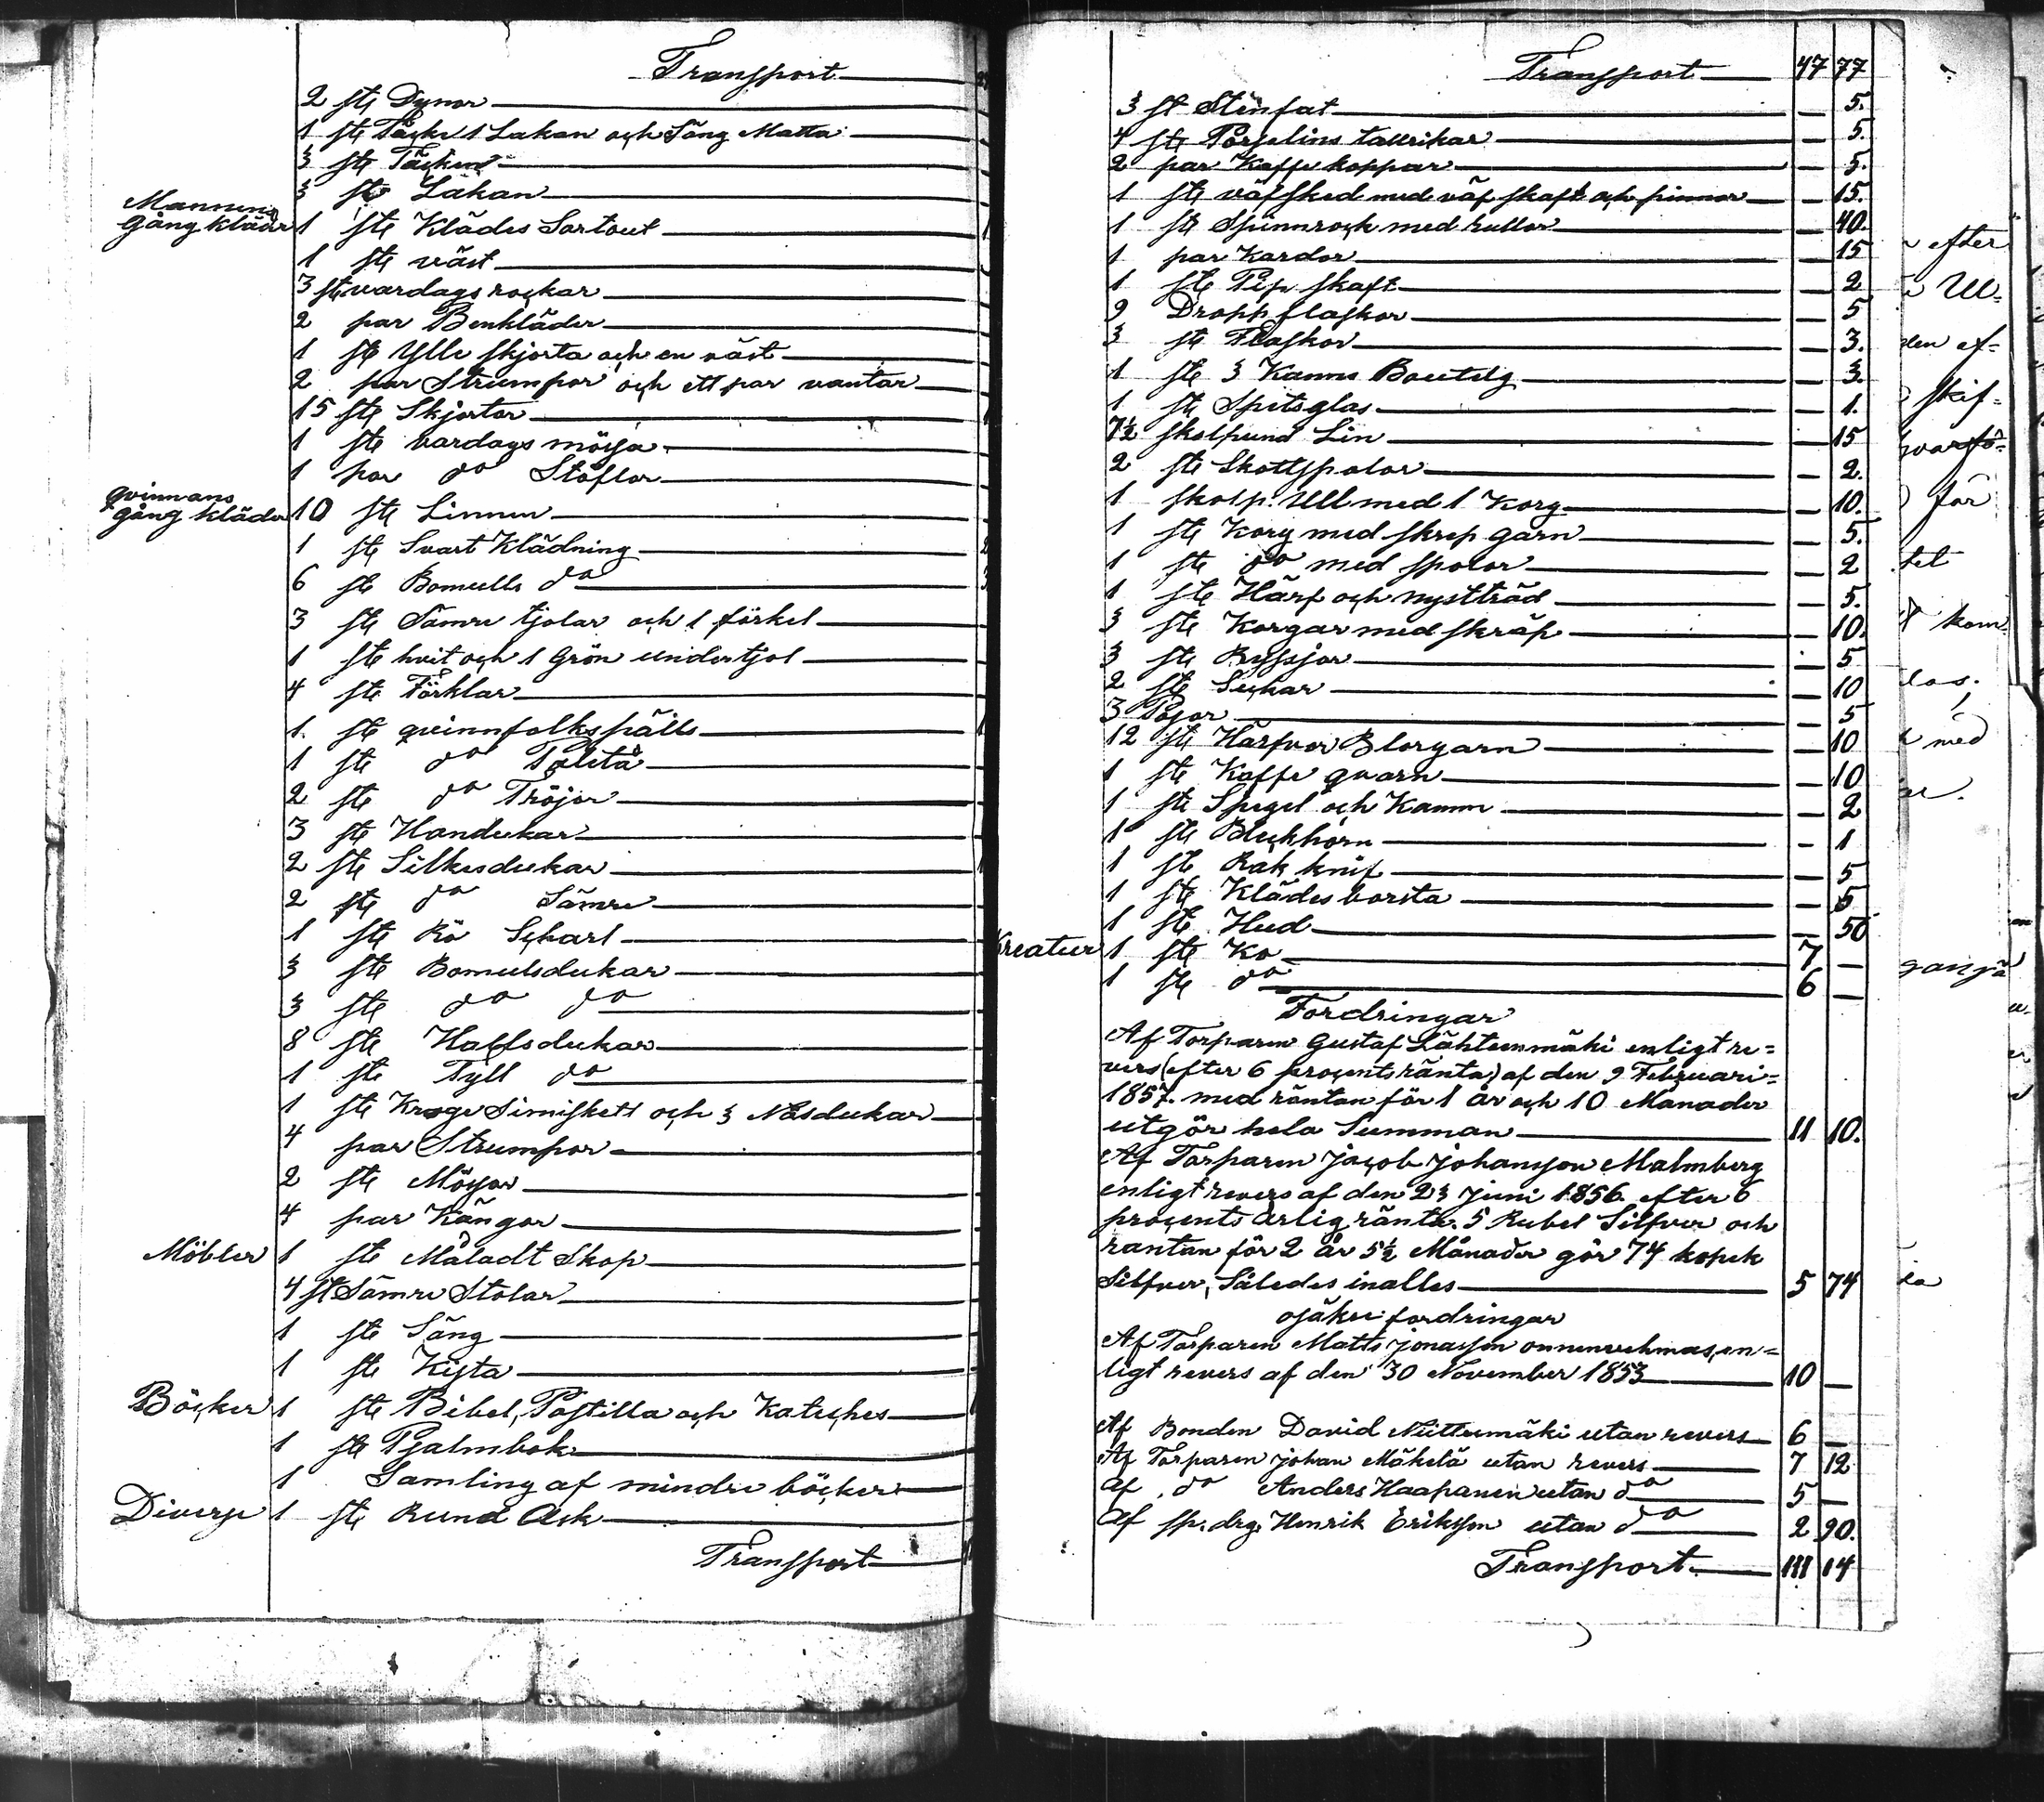 Transport
2 st Dynor
1 st Täcke 1 Lakan och Säng Matta
3 st Täcken
3 st Lakan
Mannens
gång kläder 1 st Klädes Sortout
1 st väst
3 st vardags rockar
2 par Benkläder
1 st Ylle skjorta och en väst
2 par Strumpor och ett par vantar
15 st Skjortor
1 st vardags mössa
1 par do Stöflor
qvinnans
gång kläder 10 st Linnen
1 st Svart Klädning
6 st Bomulls do
3 st Sämre tjolar och 1 förkel
1 st hvit och 1 Grön undertjol
4 st Förklar
1. st qvinnfolks pälls
1 st do Paletå
2 st do Tröjor
3 st Handukar
2 st Silkesdukar
2 st do Sämre
1 st Rö Scharl
3 st Bomulsdukar
3 st do do
8 st Halfsdukar
1 st Tyll do
1 st Krage Simiskett och 3 Näsdukar
4 par Strumpor
2 st Mössor
4 par Kängor
Möbler 1 st Måladt Skop
4 st Sämre Stolar
1 st Säng
1 st Kista
Böcker 1 st Bibel, Postilla och Kateches
1 st Psalmbok
1 Samling af mindre böcker
Diverse 1 st Rund Ask
Transport
Transport 47 77
3 st Stenfat — 5.
4 st Porselins tallrikar — 5.
2 par Kaffe koppar — 5.
1 st väfsked med väf skaft och pinnar — 15.
1 st Spinnrock med rullor — 40.
1 par Kardor — 15
1 st Pip skaft — 2
9 Dropp flaskor — 5
3 st Flaskor — 3.
1 st 3 Kanns Boutelg — 3.
1 st Spitsglas — 1.
7½ skolpund Lin — 15
2 st Skottspolar — 2.
1 skolp. Ull med 1 Korg — 10.
1 st Korg med skrep garn — 5.
1 st do med spolar — 2
1 st Härf och nystträd — 5.
3 st Korgar med skräp — 10.
3 st Ryssjor — 5
2 st Säckar — 10
3 Påsar — 5
12 st Härfvor Blorgarn — 10
1 st Kaffe qvarn — 10
1 st Spegel och Kamm — 2
1 st Bleckhorn — 1
1 st Rak knif — 5
1 st Klädesborsta — 5
1 st Hud — 50
Kreatur 1 st Ko 7 —
1 st do 6 —
Fordringar
Af Torparen Gustaf Lähteenmäki enligt re=
vers (efter 6 procents ränta) af den 9 Februari=
1857. med räntan för 1 år och 10 Månader
utgör hela Summan 11 10.
Af Torparen Jacob Johansson Malmberg
enligt revers af den 23 Juni 1856. efter 6
procents årlig ränta. 5 Rubel Silfver och
räntan för 2 år 5½ Månader gör 74 kopek
Silfver, Således inalles 5 74
osäkre fordringar
Af Torparen Matts Jonasson en=
ligt revers af den 30 November 1853 10 —
Af Bonden David Niittumäki utan revers 6 —
Af Torparen Johan Mäkelä utan revers 7 12
Af do Anders Haapanen utan do 5 —
Af sp. drg. Henrik Eriksson utan do 2 90.
Transport 111 14
efter
Ull=
den ef=
skif=
hvarfö=
för
tet
kom
med